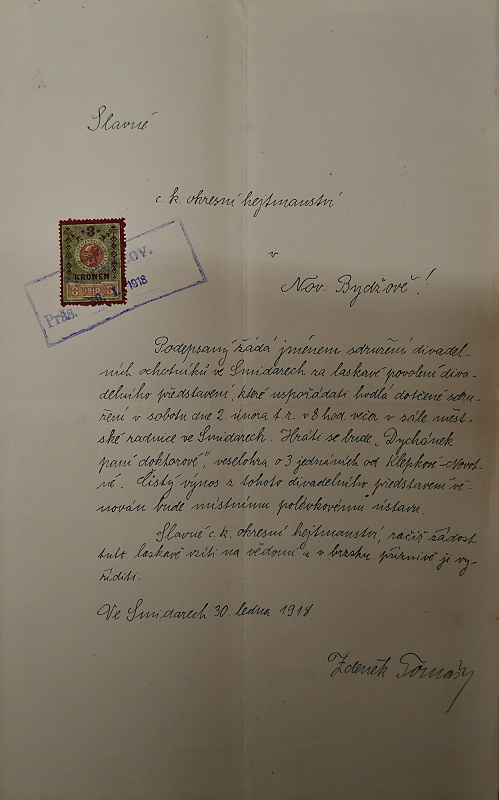 Slavné
c. k. okresní hejtmanství
v
Nov. Bydžově!
3
KRONEN
1910
Präs.
1918
Podepsaný žádá jménem sdružení divadel-
ních ochotníků ve Smidarech za laskavé povolení diva-
delního představení, které uspořádati hodlá dotčené sdru-
žení v sobotu dne 2. února t. r. v 8 hod. večer v sále měst-
ské radnice ve Smidarech. Hráti se bude „Dychánek
paní doktorové", veselohra o 3 jednáních od Klepkové-Novot-
né. Čistý výnos z tohoto divadelního představení vě-
nován bude místnímu polévkovému ústavu.
Slavné c. k. okresní hejtmanství, račiž žádost
tuto laskavě vzíti na vědomí a v brzku příznivě ji vy-
říditi.
Ve Smidarech 30 ledna 1918
Zdeněk Tomášy